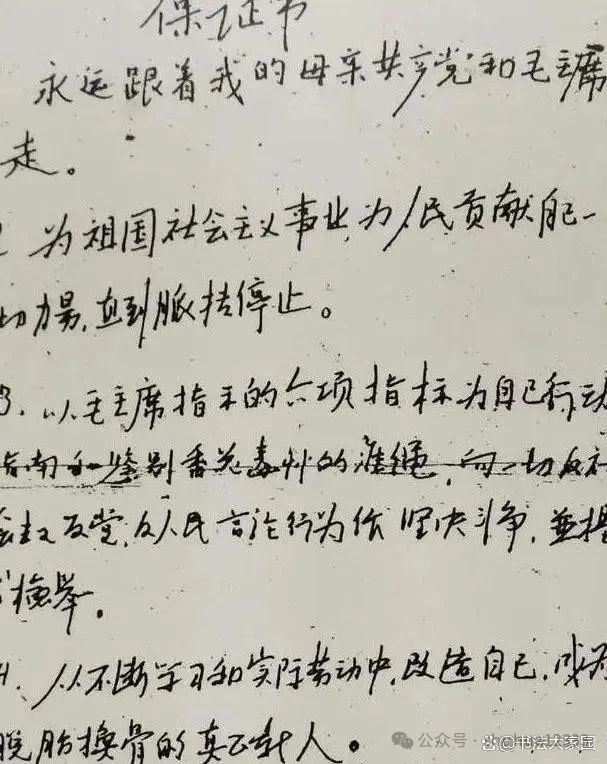 保证书
永远跟着我的母亲共产党和毛主席
走。
为祖国社会主义事业,为人民贡献自己一
切力量,直到脉搏停止。
3. 以毛主席指示的六项指标为自己行动
指南和鉴别香花毒草的准绳,向一切反社
会主义反党,反人民言论行为作坚决斗争,並提
检举。
4. 从不断学习和实际劳动中,改造自己,成为
脱胎换骨的真正新人。
公众号
@书法大家园